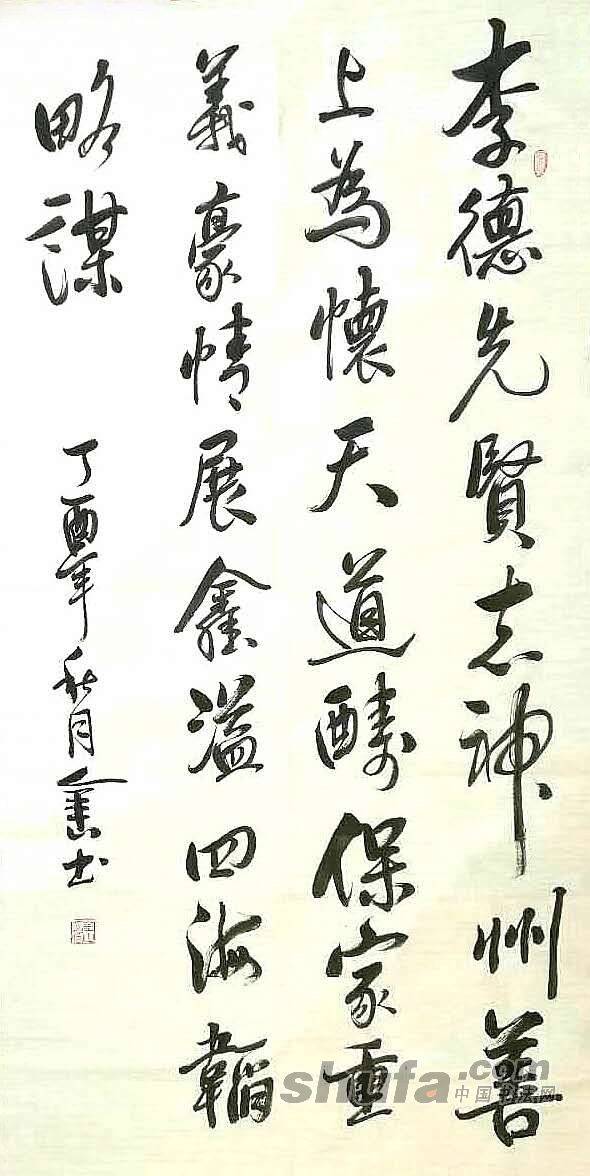 李德先賢志神州善
上為懷天道酬保家重
義豪情展鑫溢四海韜
略謀
丁酉年秋月
書
shufa.com
中国书法网